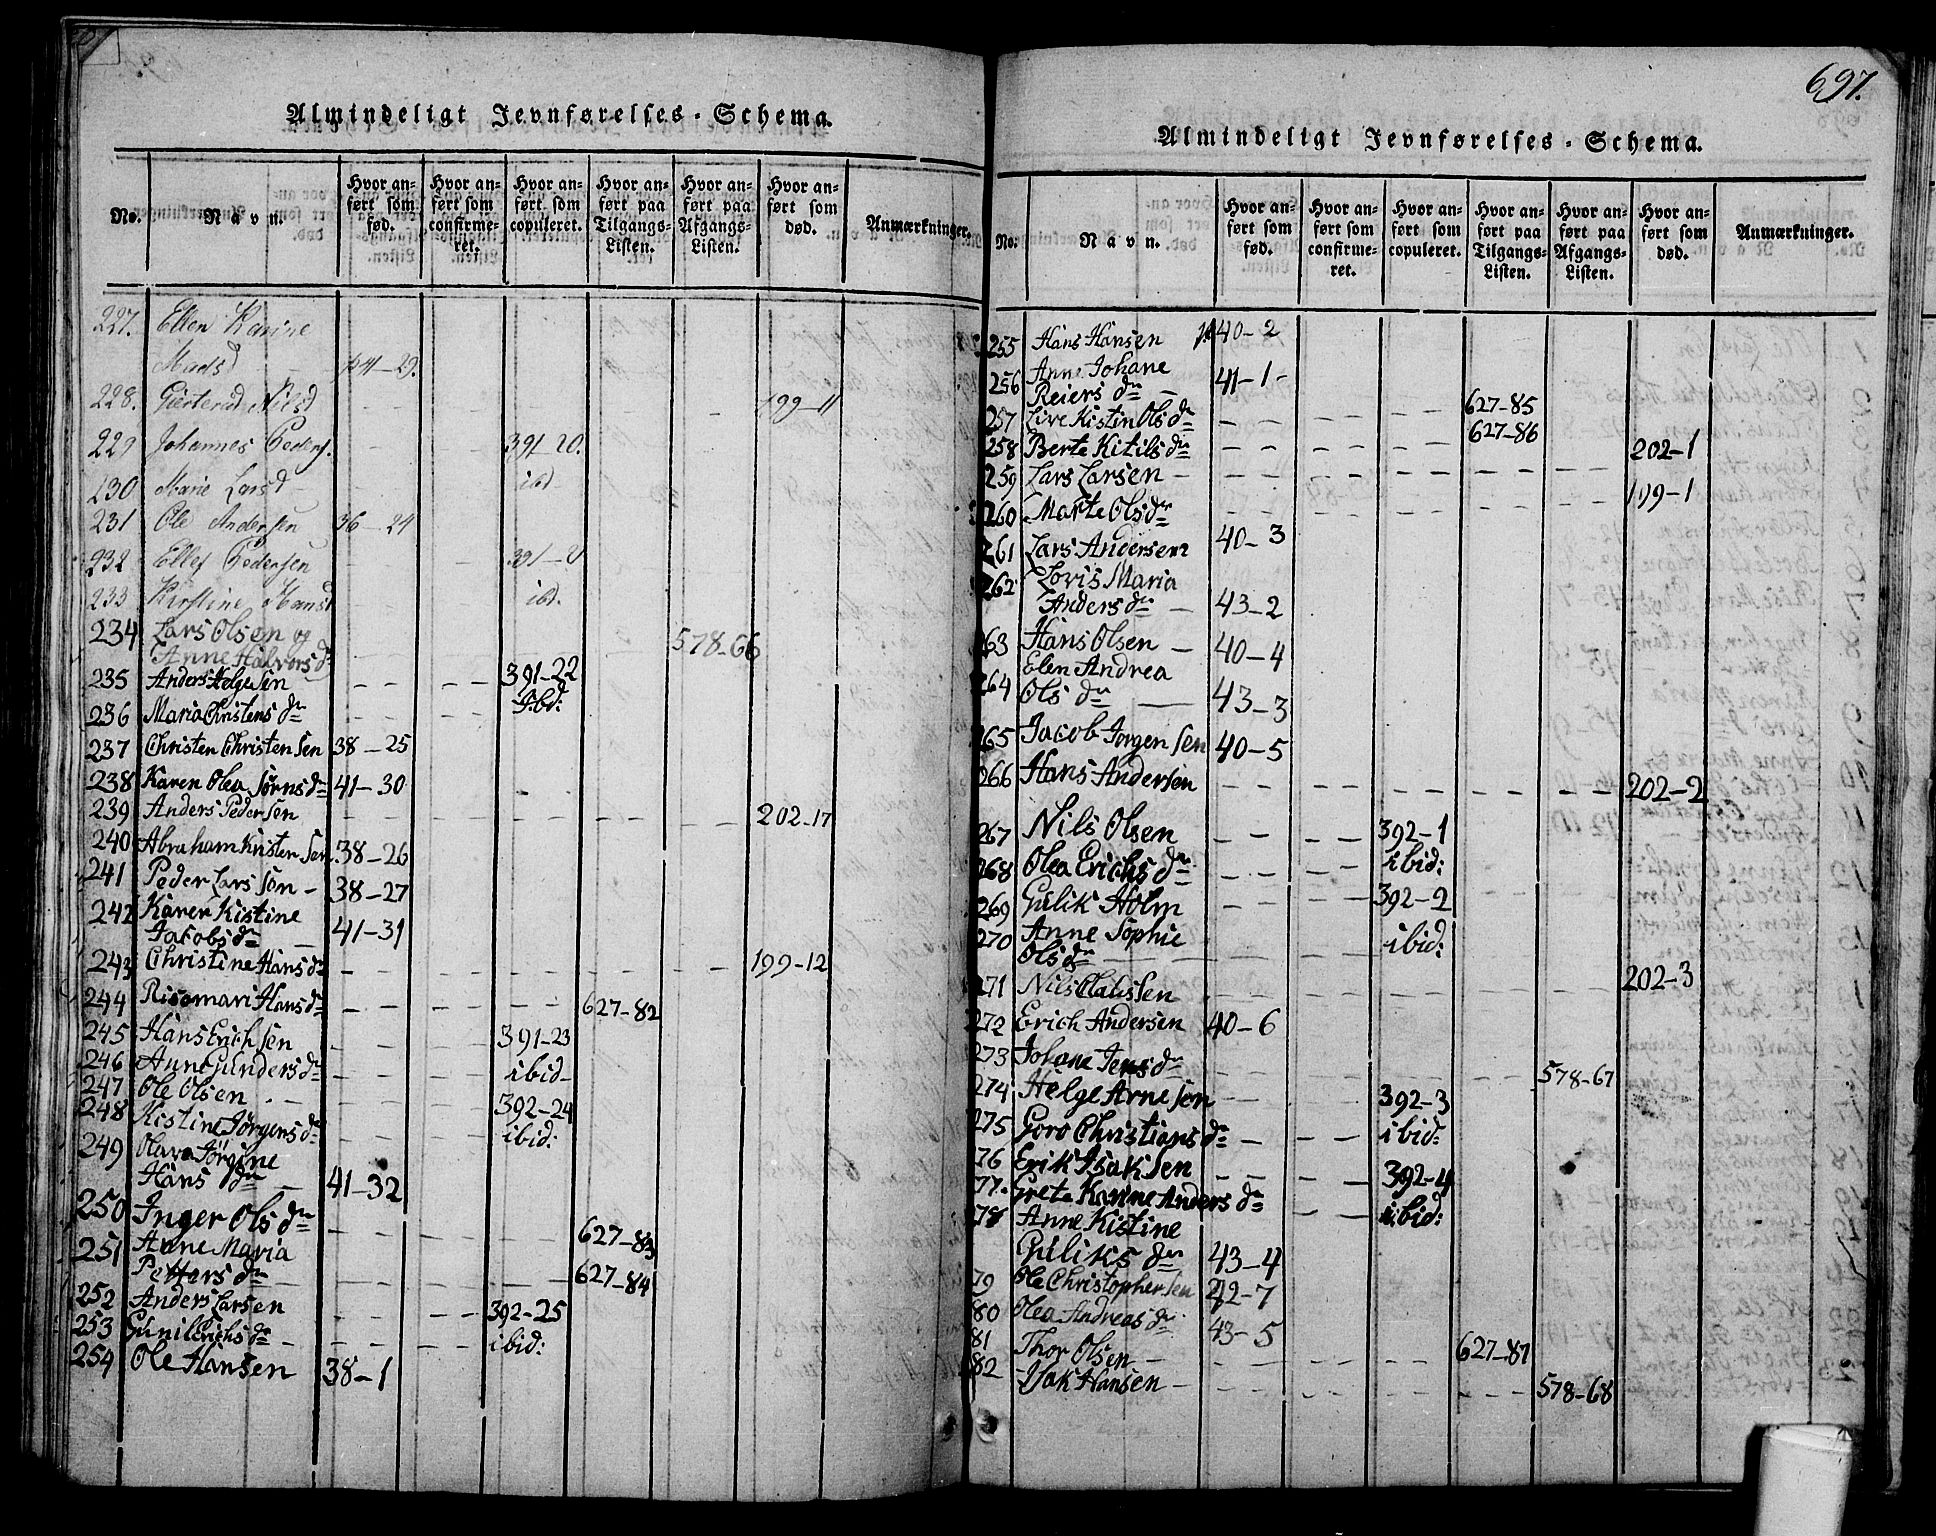 Almindeligt Jevnførelses-Schema.
No. Navn. Hvor anført som fød. Hvor anført som confirmeret. Hvor anført som copuleret. Hvor anført paa Tilgangs-Listen. Hvor anført paa Afgangs-Listen. Hvor anført som død. Anmærkninger.
227. Ellen Karine
Madsd - - 41-29.
228. Nilsd - - - - - 199-11
229 Johannes Peders. - - 391-20.
230 Marie Larsd - ibd
231 Ole Andersen 36-24
232 Ellef Pedersen - - 391-21
233 Kirstine Hansd - - ibd.
234 Lars Olsen og
Anne Halvorsd - - - - 578-66
235 Anders Helgesen - - - - 391-22
236 Maria Christens dr - - - ibd:
237 Christen Christensen 38-25
238 Karen Olea Sørnsdr 41-30
239 Anders Pedersen - - - - - - 202-17
240 Abraham Kristensen. 38-26
241 Peder Larssøn - 38-27
242 Karen Kistine
Jacobsdr - 41-31
243 Christine Hansdr - - - - - - 199-12
244 Risomari Hansdr - - - - 627-82
245 Hans Erichsen - - - 391-23
246 Anne Gundersdr - - - ibid-
247 Ole Olsen - - - 392-24
248 Kistine Jörgensdr - - - ibid:
249 Olava Jörgine
Hans dr - 41-32
250 Inger Olsdr - - - - 627-83
251 Anne Maria
Petters dr - - - - 627-84
252 Anders Larsen - - - 392-25
253 Gunil Erichsdr - - - ibid:
254 Ole Hansen 38-1
697.
Almindeligt Jevnførelses-Schema.
No. Navn. Hvor anført som fød. Hvor anført som confirmeret. Hvor anført som copuleret. Hvor anført paa Tilgangs-Listen. Hvor anført paa Afgangs-Listen. Hvor anført som død. Anmærkninger.
255 Hans Hansen 40-2
256 Anne Johane
Reiers dr - 41-1-
257 Live Kistin Olsdr - - - - 627-85
258 Berte Kitilsdr - - - - 627-86
259 Lars Larsen - - - - - - 202-1
260 Marte Olsdr - - - - - - 199-1
261 Lars Andersen 40-3
262 Lovis Maria
Anders dr - 43-2
263 Hans Olsen - 40-4
264 Elen Andrea
Ols dr - 43-3
265 Jacob Jorgensen 40-5
266 Hans Andersen - - - - - - 202-2
267 Nils Olsen - - - 392-1
268 Olea Erichsdr - - - ibid:
269 Gulik Holm - - - 392-2
270 Anne Sophie
Olsdr - - - ibid:
271 Nils Olaussen - - - - - - 202-3
272 Erich Andersen 40-6
273 Johane Jensdr - - - - - 578-67
274 Helge Arnesøn - - 392-3
275 Goro Christiansdr - - - ibid:
76 Erik Isaksen - - - 392-4
77. Grete Karine Anders dr - - ibid:
78 Anne Kistine
Guliks dr 43-4
79 Ole Christophersen 42-7
80 Olea Andreasdr 43-5
81 Thor Olsen - - - - 627-87
82 Isak Hansen - - - - - 578-68